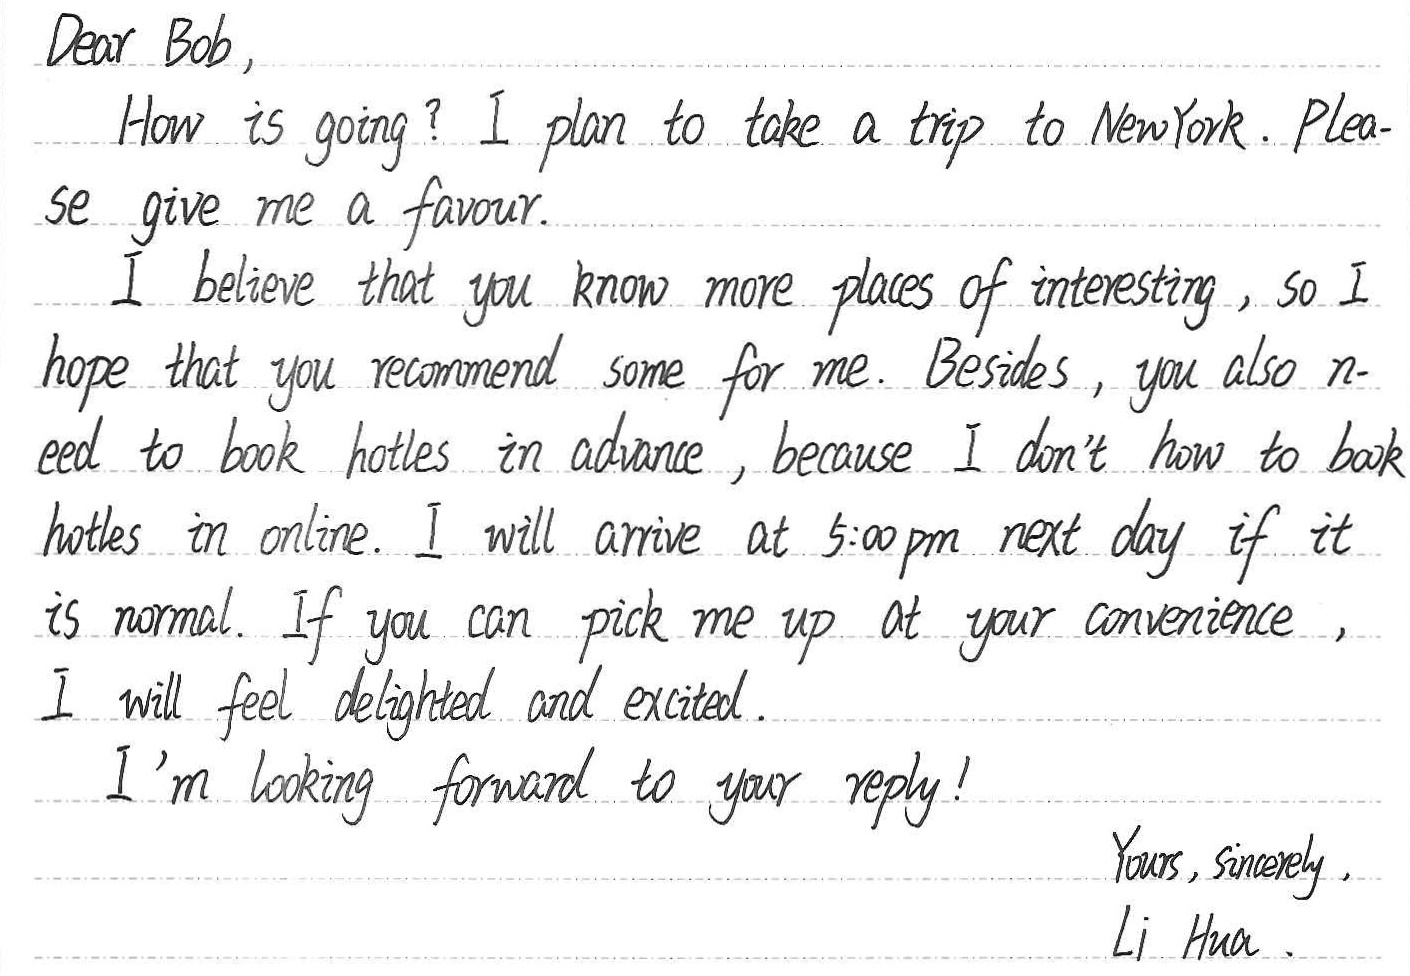 Dear Bob,
How is going? I plan to take a trip to NewYork. Plea-
se give me a favour.
I believe that you know more places of interesting, so I
hope that you recommend some for me. Besides, you also n-
eed to book hotles in advance, because I don't how to book
hotles in online. I will arrive at 5:00pm next day if it
is normal. If you can pick me up at your convenience,
I will feel delighted and excited.
I'm looking forward to your reply!
Yours, sincerely,
Li Hua.